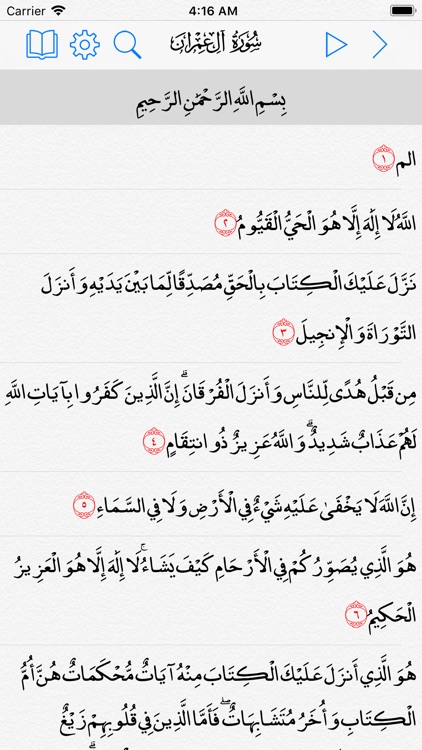 Carrier 4:16 AM
سُورَةُ آلِ عِمْرَان
بِسْمِ اللَّهِ الرَّحْمَٰنِ الرَّحِيمِ
الم ١
اللَّهُ لَا إِلَٰهَ إِلَّا هُوَ الْحَيُّ الْقَيُّومُ ٢
نَزَّلَ عَلَيْكَ الْكِتَابَ بِالْحَقِّ مُصَدِّقًا لِّمَا بَيْنَ يَدَيْهِ وَأَنزَلَ
التَّوْرَاةَ وَالْإِنجِيلَ ٣
مِن قَبْلُ هُدًى لِّلنَّاسِ وَأَنزَلَ الْفُرْقَانَ ۗ إِنَّ الَّذِينَ كَفَرُوا بِآيَاتِ اللَّهِ
لَهُمْ عَذَابٌ شَدِيدٌ ۗ وَاللَّهُ عَزِيزٌ ذُو انتِقَامٍ ٤
إِنَّ اللَّهَ لَا يَخْفَىٰ عَلَيْهِ شَيْءٌ فِي الْأَرْضِ وَلَا فِي السَّمَاءِ ٥
هُوَ الَّذِي يُصَوِّرُكُمْ فِي الْأَرْحَامِ كَيْفَ يَشَاءُ ۚ لَا إِلَٰهَ إِلَّا هُوَ الْعَزِيزُ
الْحَكِيمُ ٦
هُوَ الَّذِي أَنزَلَ عَلَيْكَ الْكِتَابَ مِنْهُ آيَاتٌ مُّحْكَمَاتٌ هُنَّ أُمُّ
الْكِتَابِ وَأُخَرُ مُتَشَابِهَاتٌ ۖ فَأَمَّا الَّذِينَ فِي قُلُوبِهِمْ زَيْغٌ